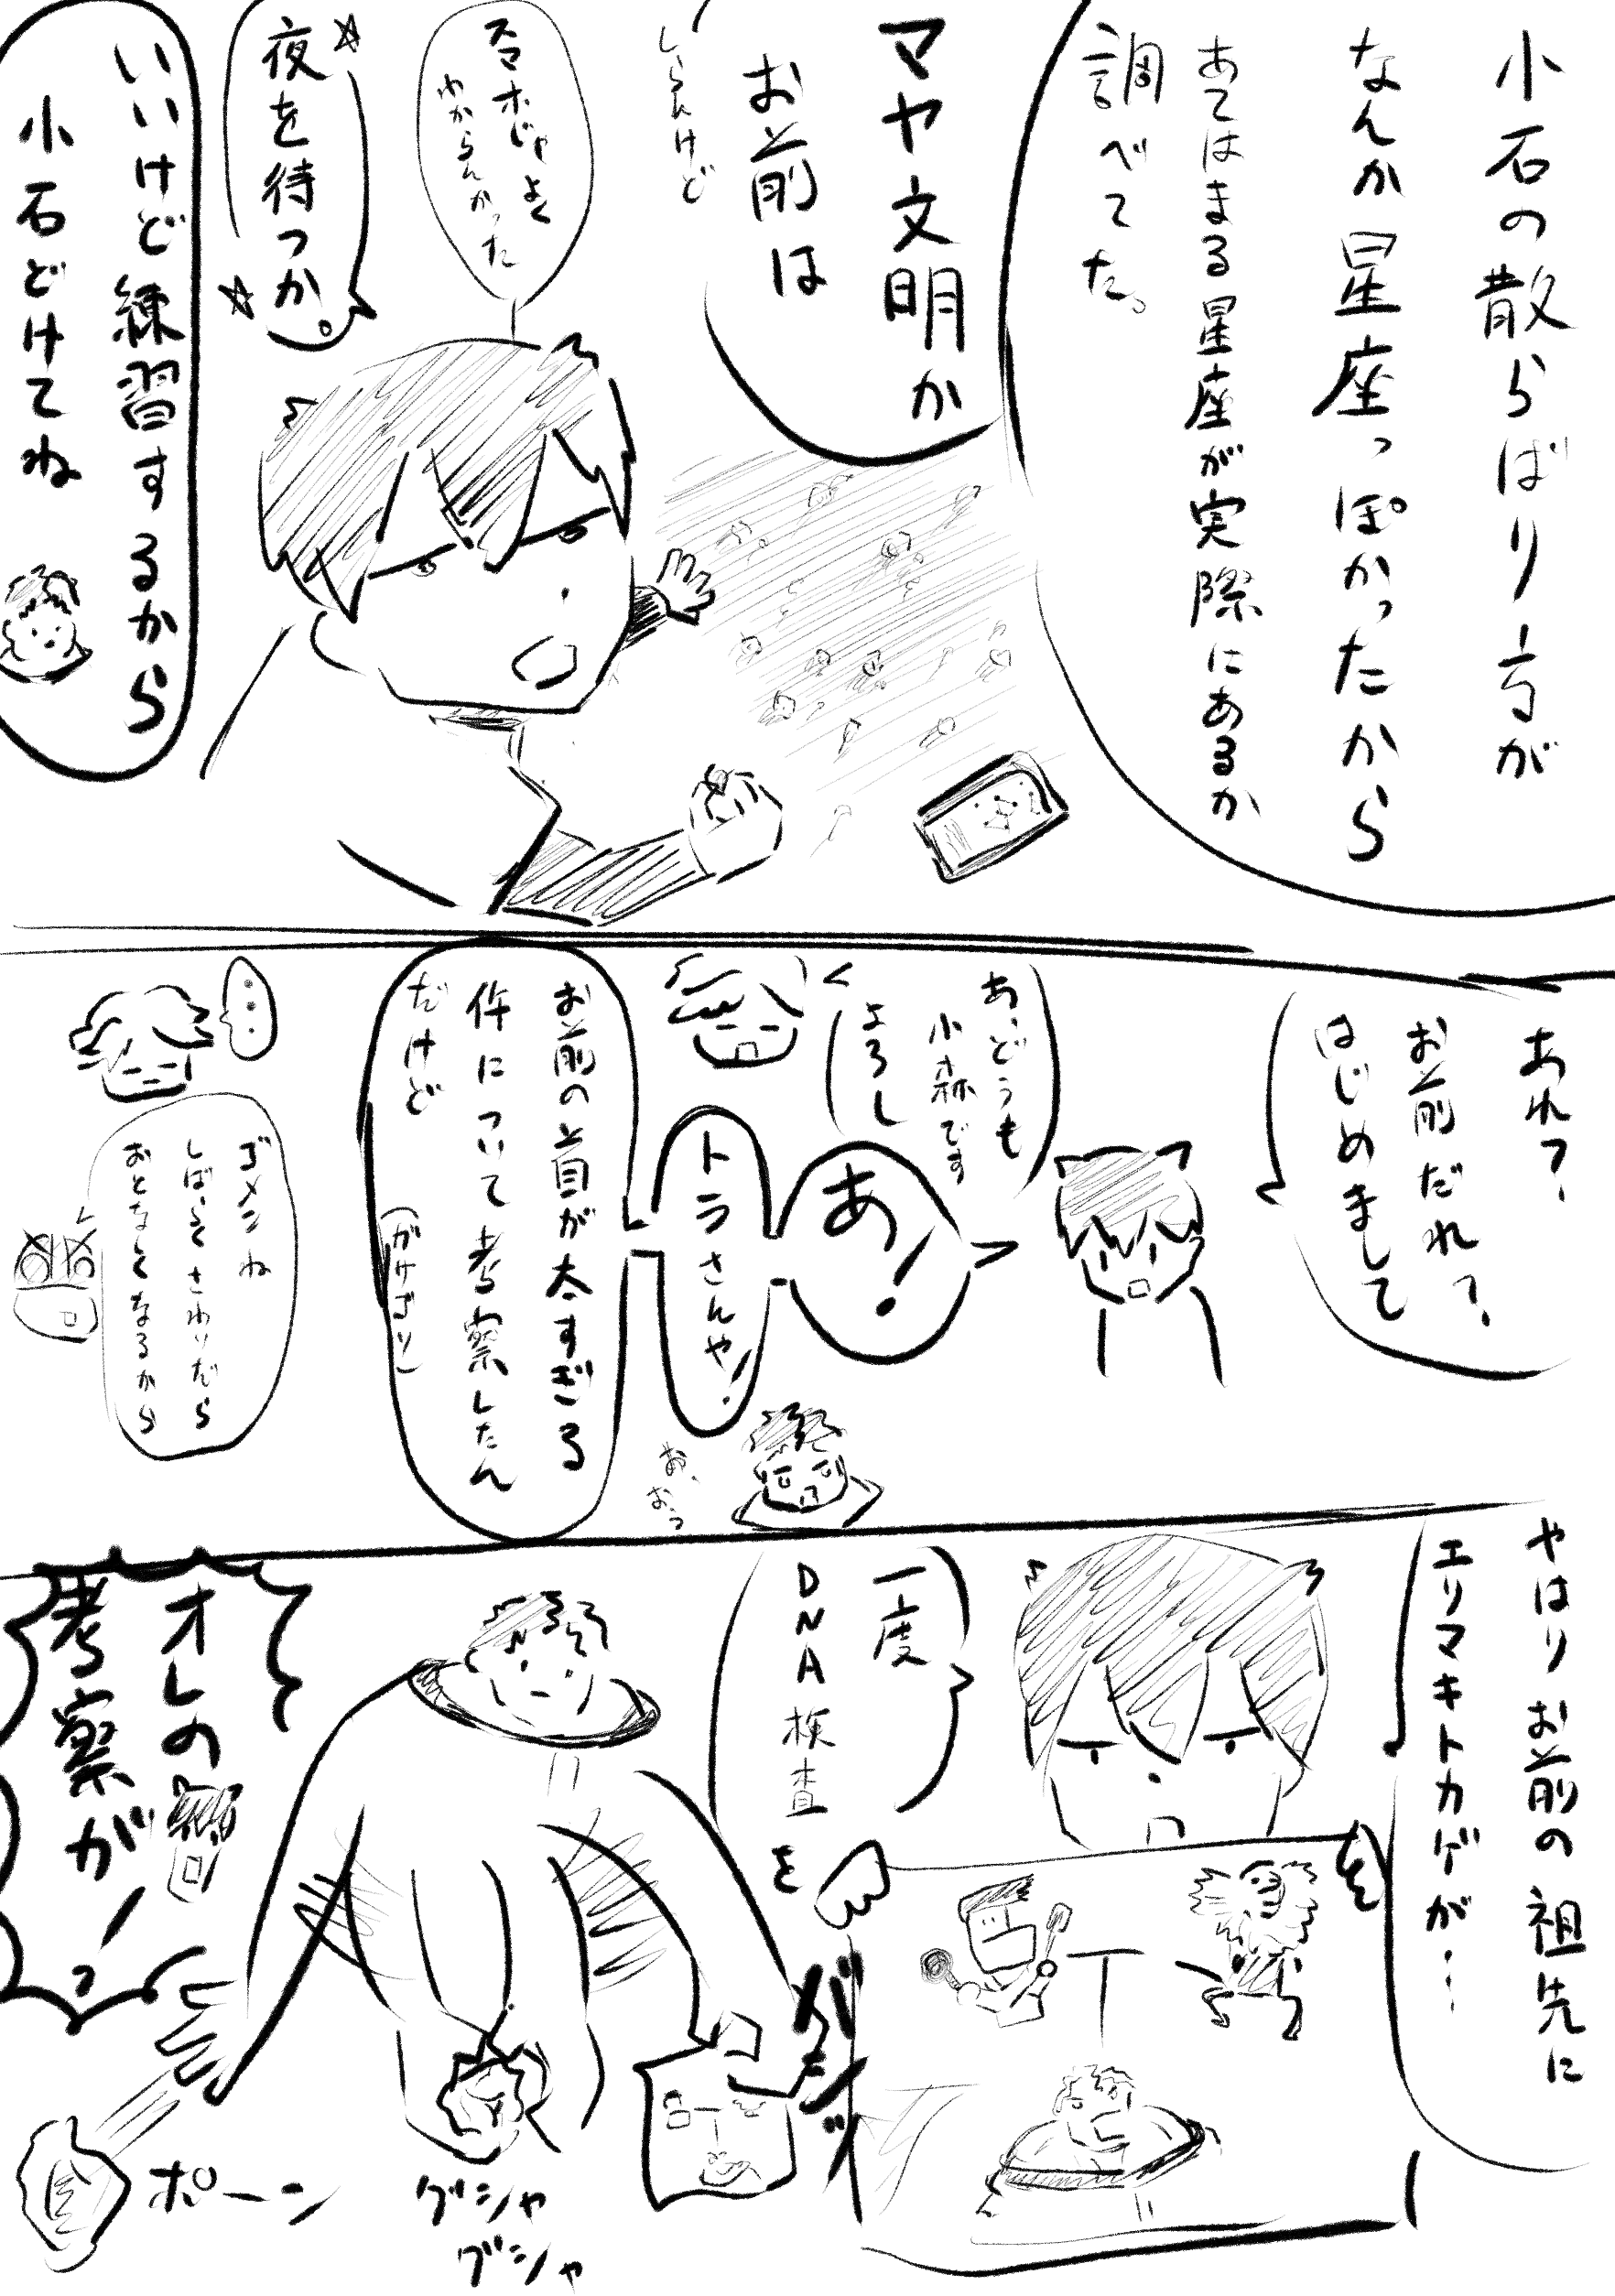 小石の散らばり方が
なんか星座っぽかったから
あてはまる星座が実際にあるか
調べてた。
マヤ文明か
お前は
しらんけど
スマホじゃよく
わからんかった
夜を待つか。
いいけど練習するから
小石どけてね
あれ？
お前だれ？
はじめまして
あ、どうも
小森です
よろし
あ！
トラさんや！
お前の首が太すぎる
件について考察したん
だけど
(ガサゴソ)
あ、
おっ
・・・
ゴメンね
しばらくさわいだら
おとなしくなるから
やはりお前の祖先に
エリマキトカゲが…
一度
DNA検査
を
ガシッ
グシャ
グシャ
ポーン
オレの
考察がーっ